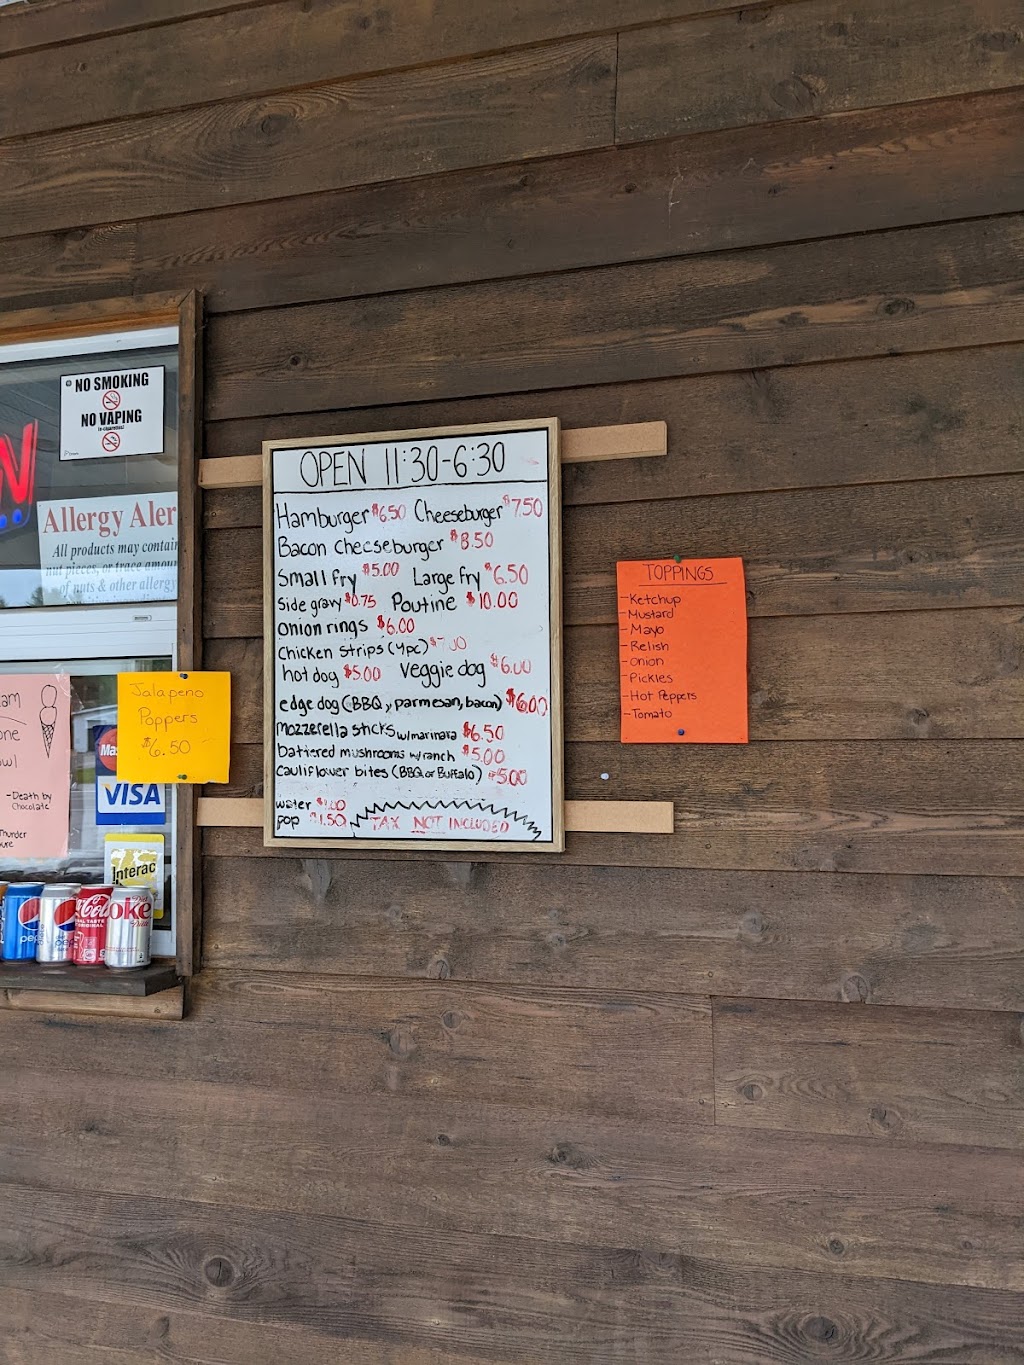 NO SMOKING
NO VAPING
(e-cigarettes)
N
Allergy Aler
All products may contain
nut pieces, or trace amoun
of nuts & other allergy
OPEN 11:30-6:30
Hamburger $6.50 Cheeseburger $7.50
Bacon Cheeseburger $8.50
Small fry $5.00 Large fry $6.50
Side gravy $0.75 Poutine $10.00
Onion rings $6.00
Chicken Strips (4pc) $7.00
hot dog $5.00 Veggie dog $6.00
edge dog (BBQ, parmesan, bacon) $6.00
mozzerella sticks w/marinara $6.50
battered mushrooms w/ranch $5.00
Cauliflower bites (BBQ or Buffalo) $5.00
water $1.00
pop $1.50
TAX NOT INCLUDED
TOPPINGS
-Ketchup
-Mustard
-Mayo
-Relish
-Onion
-Pickles
-Hot Peppers
-Tomato
Jalapeno
Poppers
$6.50
am
one
owl
-Death by
Chocolate
Thunder
Mas
VISA
Interac
pepsi
pepsi
Coca
oke